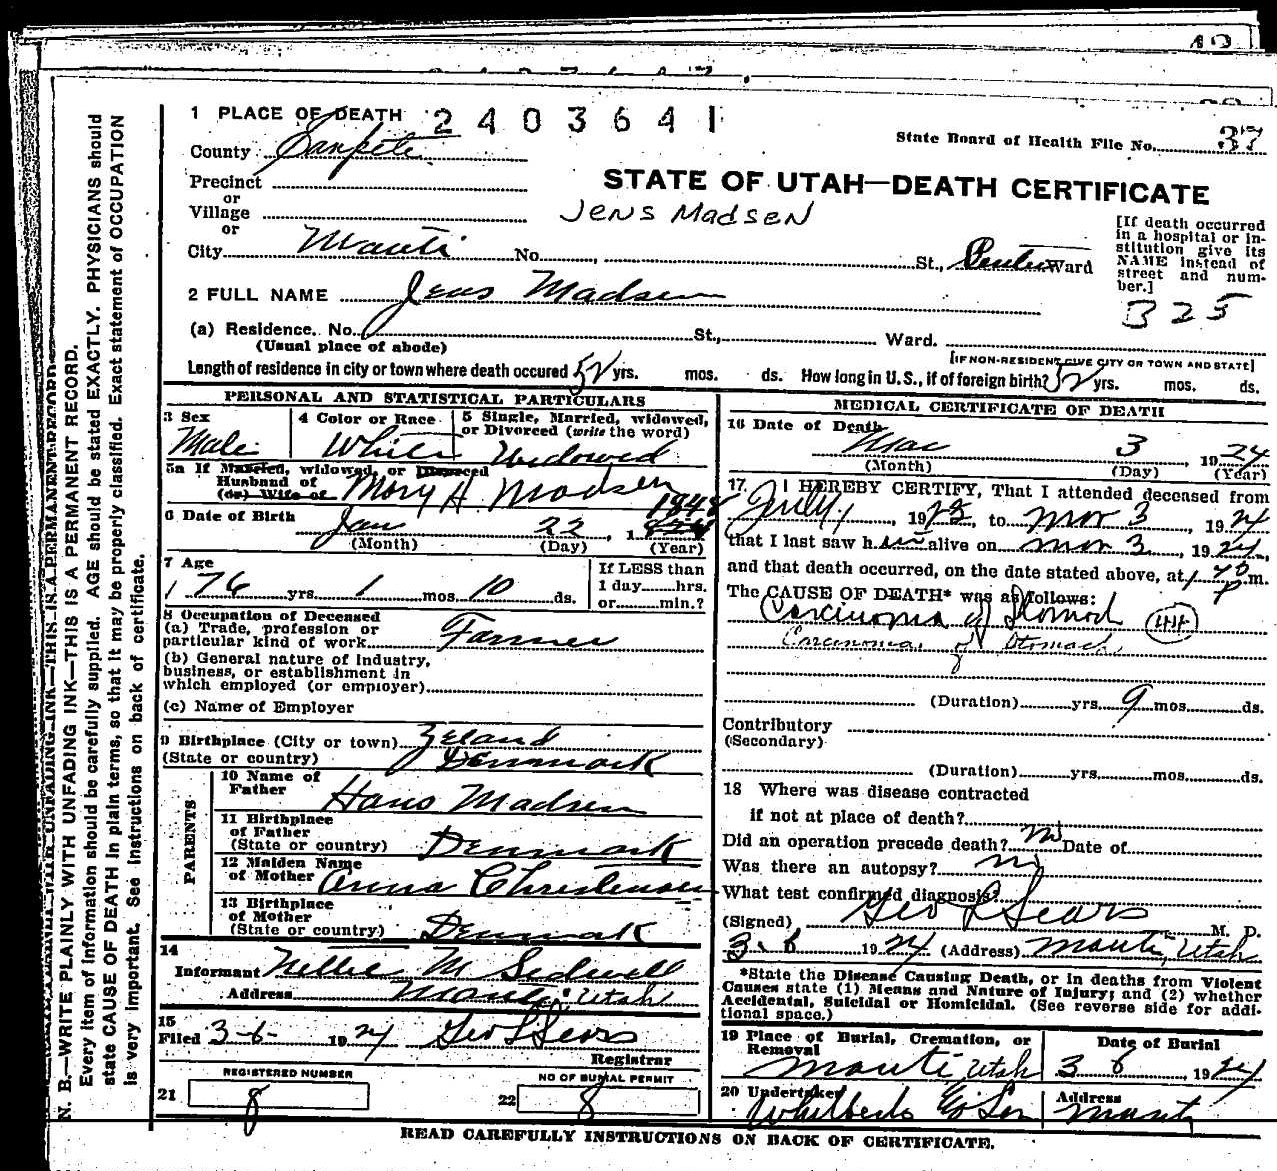 1 PLACE OF DEATH 2403641
State Board of Health File No. 37
County Sanpete
STATE OF UTAH—DEATH CERTIFICATE
Precinct
or
Village
Jens Madsen
or
City Manti No. St., Center Ward
[If death occurred in a hospital or in-
stitution give its
NAME instead of
street and num-
ber.]
2 FULL NAME Jens Madsen
325
(a) Residence. No. St., Ward.
(Usual place of abode)
[IF NON-RESIDENT GIVE CITY OR TOWN AND STATE]
Length of residence in city or town where death occured 52 yrs. mos. ds. How long in U.S., if of foreign birth? 52 yrs. mos. ds.
PERSONAL AND STATISTICAL PARTICULARS
3 Sex
Male
4 Color or Race
White
5 Single, Married, widowed,
or Divorced (write the word)
Widowed
5a If Married, widowed, or Divorced
Husband of
(or) Wife of Mary A. Madsen
6 Date of Birth Jan 22, 1848
(Month) (Day) (Year)
7 Age
76 yrs. 1 mos. 10 ds.
If LESS than
1 day hrs.
or min.?
8 Occupation of Deceased
(a) Trade, profession or
particular kind of work Farmer
(b) General nature of industry,
business, or establishment in
which employed (or employer)
(c) Name of Employer
9 Birthplace (City or town) Zeland
(State or country) Denmark
PARENTS
10 Name of
Father Hans Madsen
11 Birthplace
of Father
(State or country) Denmark
12 Maiden Name
of Mother Anna Christensen
13 Birthplace
of Mother
(State or country) Denmark
14
Informant Nellie M Sidwell
Address Manti Utah
15
Filed 3-6- 1924 Geo L Sears
Registrar
REGISTERED NUMBER
21 8
NO OF BURIAL PERMIT
22 8
MEDICAL CERTIFICATE OF DEATH
16 Date of Death
Mar 3, 1924
(Month) (Day) (Year)
17 I HEREBY CERTIFY, That I attended deceased from
July, 1923, to Mar 3, 1924
that I last saw him alive on Mar 3, 1924,
and that death occurred, on the date stated above, at 1 40 P m.
The CAUSE OF DEATH* was as follows:
Carcinoma of Stomach 44
Carcinoma of Stomach
(Duration) yrs. 9 mos. ds.
Contributory
(Secondary)
(Duration) yrs. mos. ds.
18 Where was disease contracted
if not at place of death?
Did an operation precede death? no Date of
Was there an autopsy? no
What test confirmed diagnosis?
(Signed) Geo L Sears M. D.
3-6 1924 (Address) Manti, Utah
*State the Disease Causing Death, or in deaths from Violent
Causes state (1) Means and Nature of Injury; and (2) whether
Accidental, Suicidal or Homicidal. (See reverse side for addi-
tional space.)
19 Place of Burial, Cremation, or
Removal
Manti Utah
Date of Burial
3 6, 1924
20 Undertaker
Address
Manti
READ CAREFULLY INSTRUCTIONS ON BACK OF CERTIFICATE.
N. B.—WRITE PLAINLY WITH UNFADING INK—THIS IS A PERMANENT RECORD.
Every item of information should be carefully supplied. AGE should be stated EXACTLY. PHYSICIANS should
state CAUSE OF DEATH in plain terms, so that it may be properly classified. Exact statement of OCCUPATION
is very important. See instructions on back of certificate.